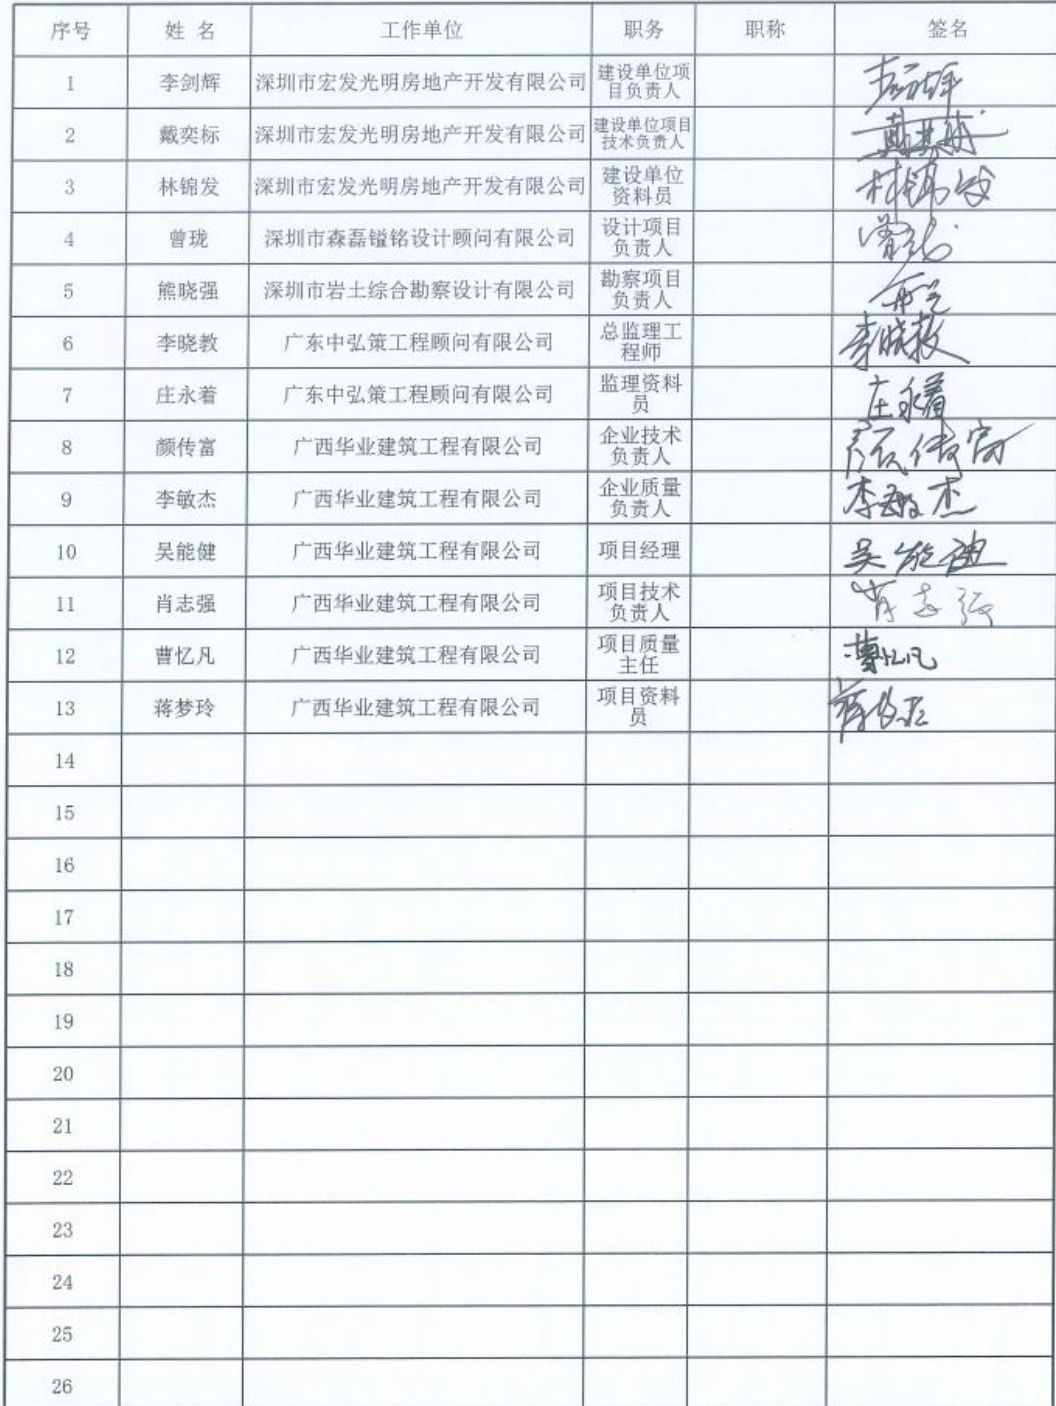 序号 姓 名 工作单位 职务 职称 签名
1 李剑辉 深圳市宏发光明房地产开发有限公司 建设单位项
目负责人
2 戴奕标 深圳市宏发光明房地产开发有限公司 建设单位项目
技术负责人
3 林锦发 深圳市宏发光明房地产开发有限公司 建设单位
资料员 林锦发
4 曾珑 深圳市森磊镒铭设计顾问有限公司 设计项目
负责人
5 熊晓强 深圳市岩土综合勘察设计有限公司 勘察项目
负责人
6 李晓教 广东中弘策工程顾问有限公司 总监理工
程师 李晓教
7 庄永着 广东中弘策工程顾问有限公司 监理资料
员 庄永着
8 颜传富 广西华业建筑工程有限公司 企业技术
负责人 颜传富
9 李敏杰 广西华业建筑工程有限公司 企业质量
负责人 李敏杰
10 吴能健 广西华业建筑工程有限公司 项目经理 吴能健
11 肖志强 广西华业建筑工程有限公司 项目技术
负责人 肖志强
12 曹忆凡 广西华业建筑工程有限公司 项目质量
主任 曹忆凡
13 蒋梦玲 广西华业建筑工程有限公司 项目资料
员
14
15
16
17
18
19
20
21
22
23
24
25
26